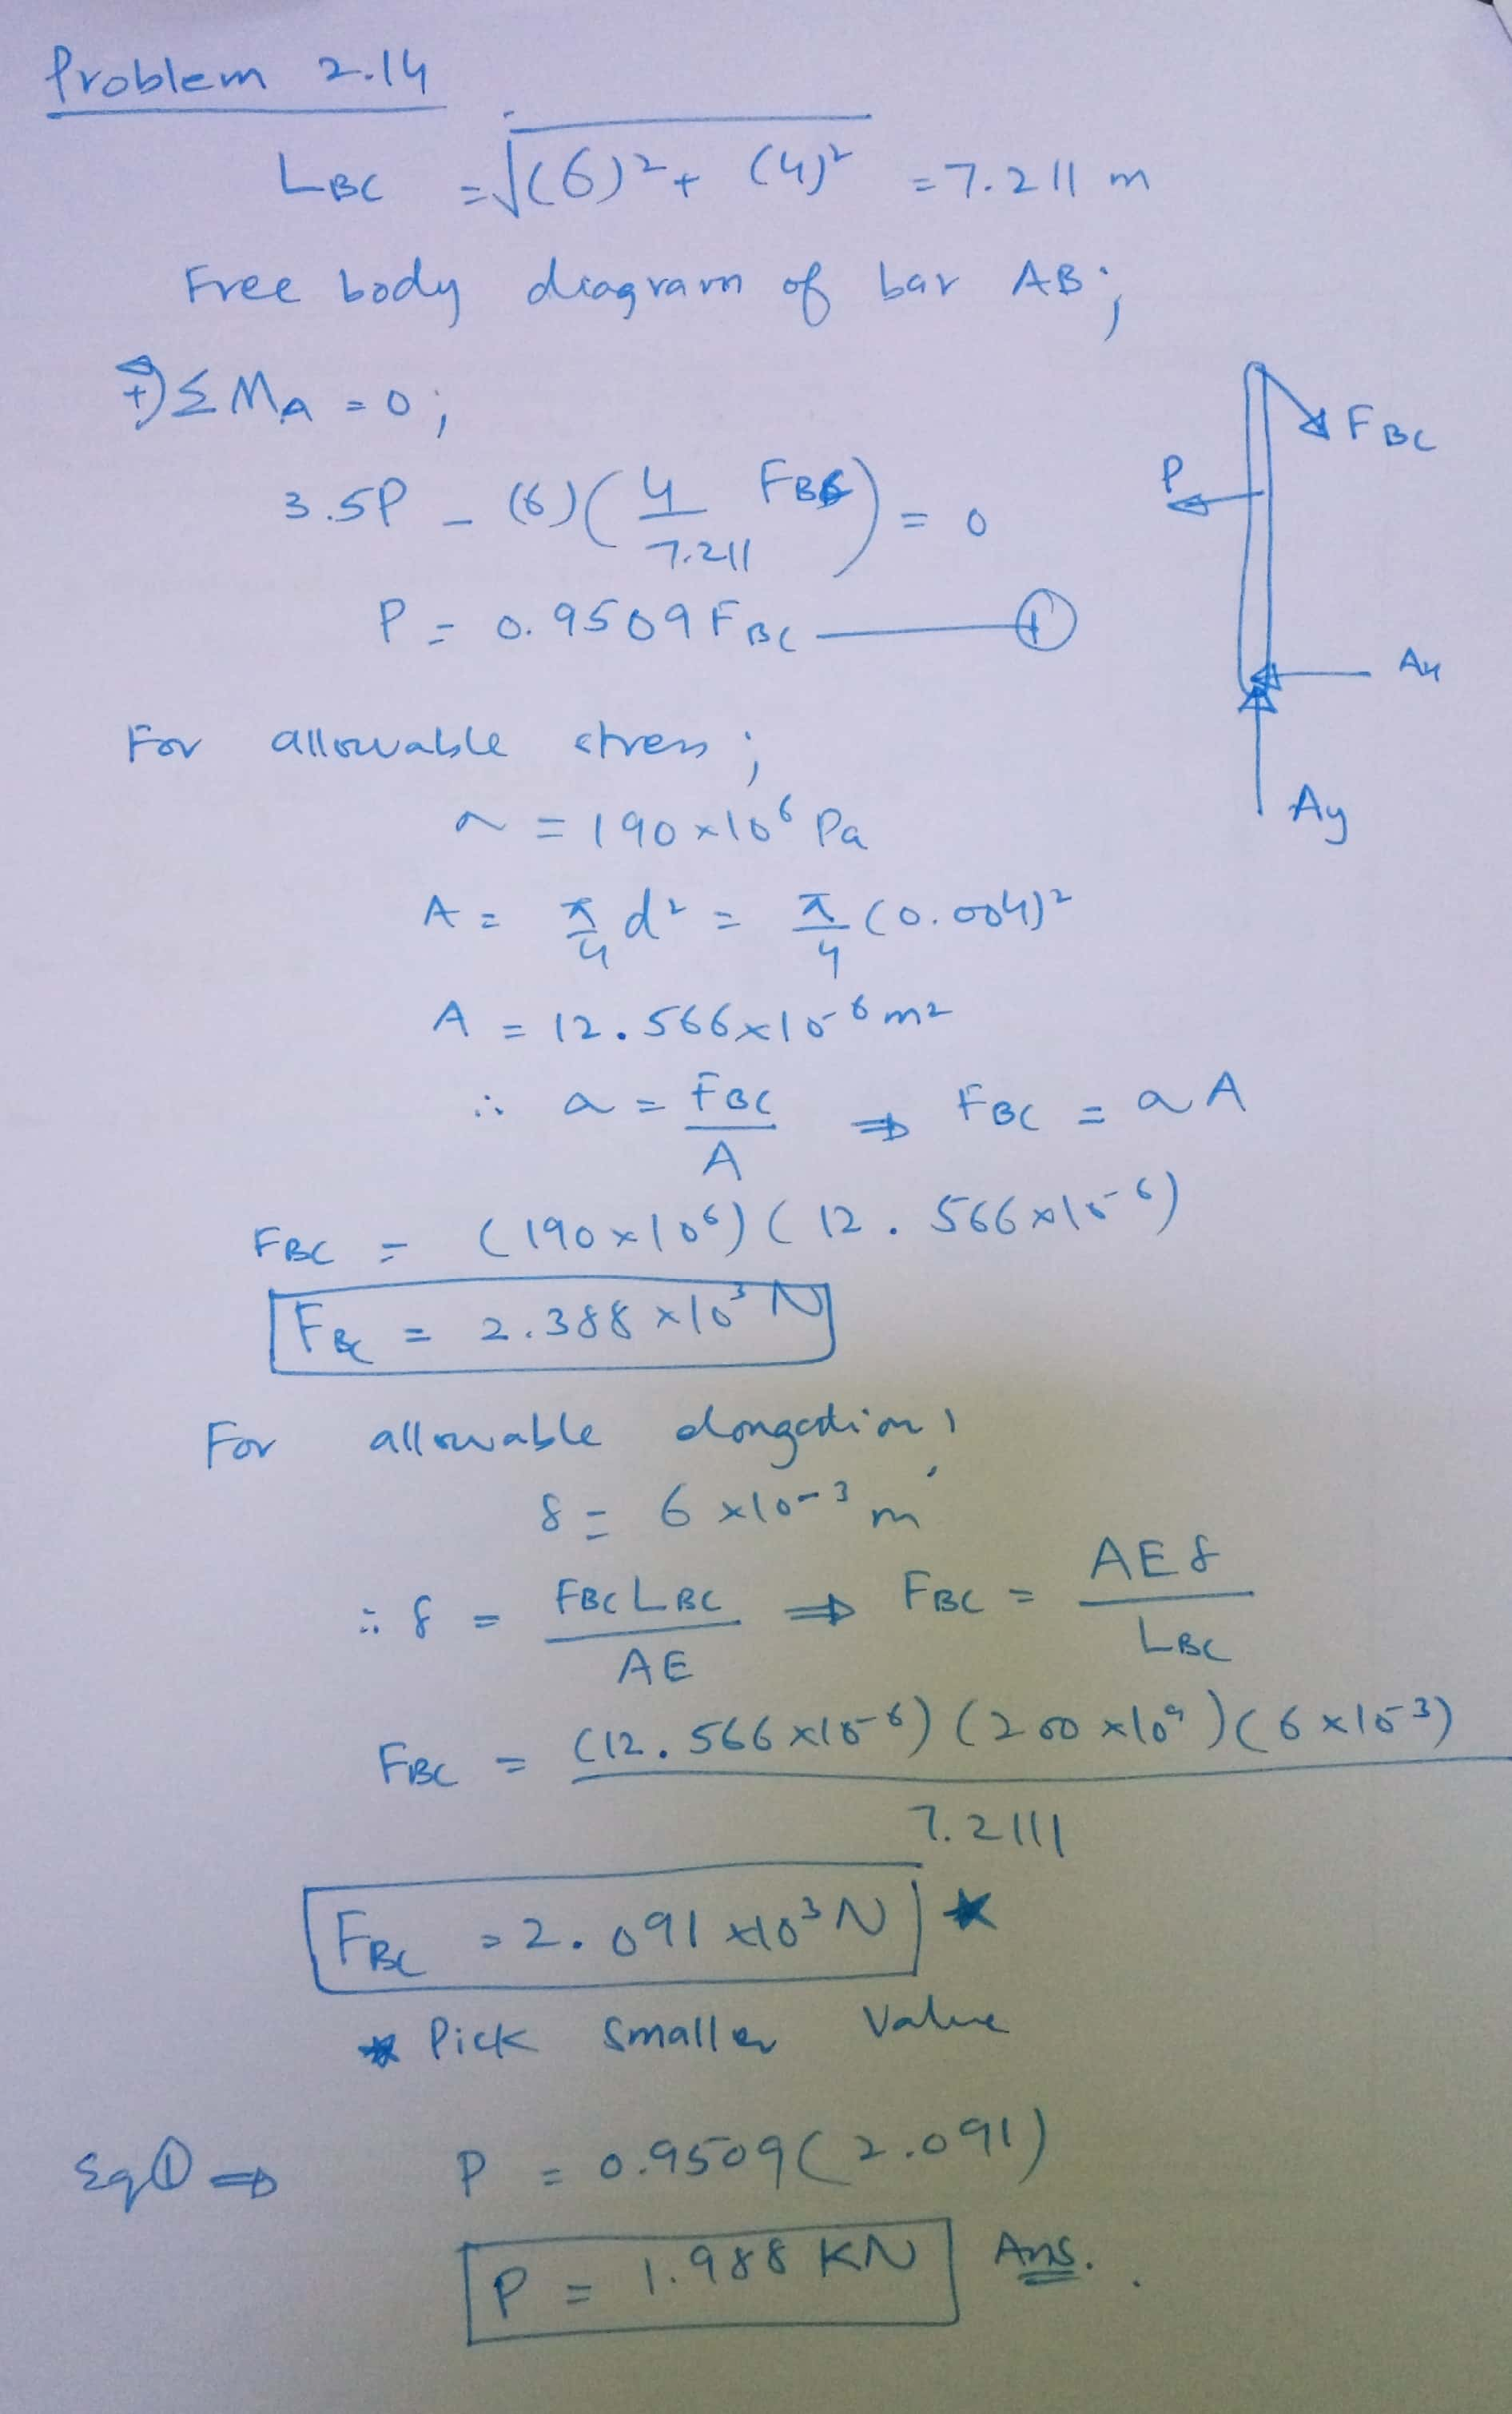 Problem 2.14
L_BC = √((6)² + (4)²) = 7.211 m
Free body diagram of bar AB;
+) Σ M_A = 0;
3.5P - (6)(4/7.211 F_BC) = 0
P = 0.9509 F_BC —— ①
F_BC
P
Ax
Ay
For allowable stress;
σ = 190 × 10⁶ Pa
A = π/4 d² = π/4 (0.004)²
A = 12.566 × 10⁻⁶ m²
∴ σ = F_BC/A ⇒ F_BC = σ A
F_BC = (190 × 10⁶) (12.566 × 10⁻⁶)
F_BC = 2.388 × 10³ N
For allowable elongation,
δ = 6 × 10⁻³ m
∴ δ = F_BC L_BC / AE ⇒ F_BC = AEδ / L_BC
F_BC = (12.566 × 10⁻⁶) (200 × 10⁹) (6 × 10⁻³) / 7.2111
F_BC = 2.091 × 10³ N ★
★ Pick smaller value
Eq ① ⇒ P = 0.9509 (2.091)
P = 1.988 KN Ans.